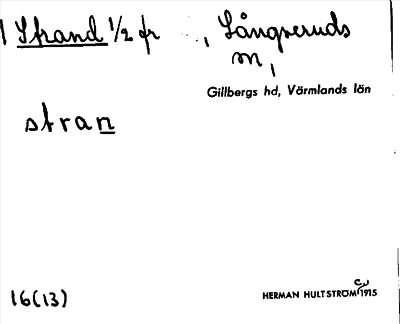 1 Strand 1/2 fr , Långseruds
m,
Gillbergs hd, Värmlands län
stran
16(13)
HERMAN HULTSTRÖM 1915